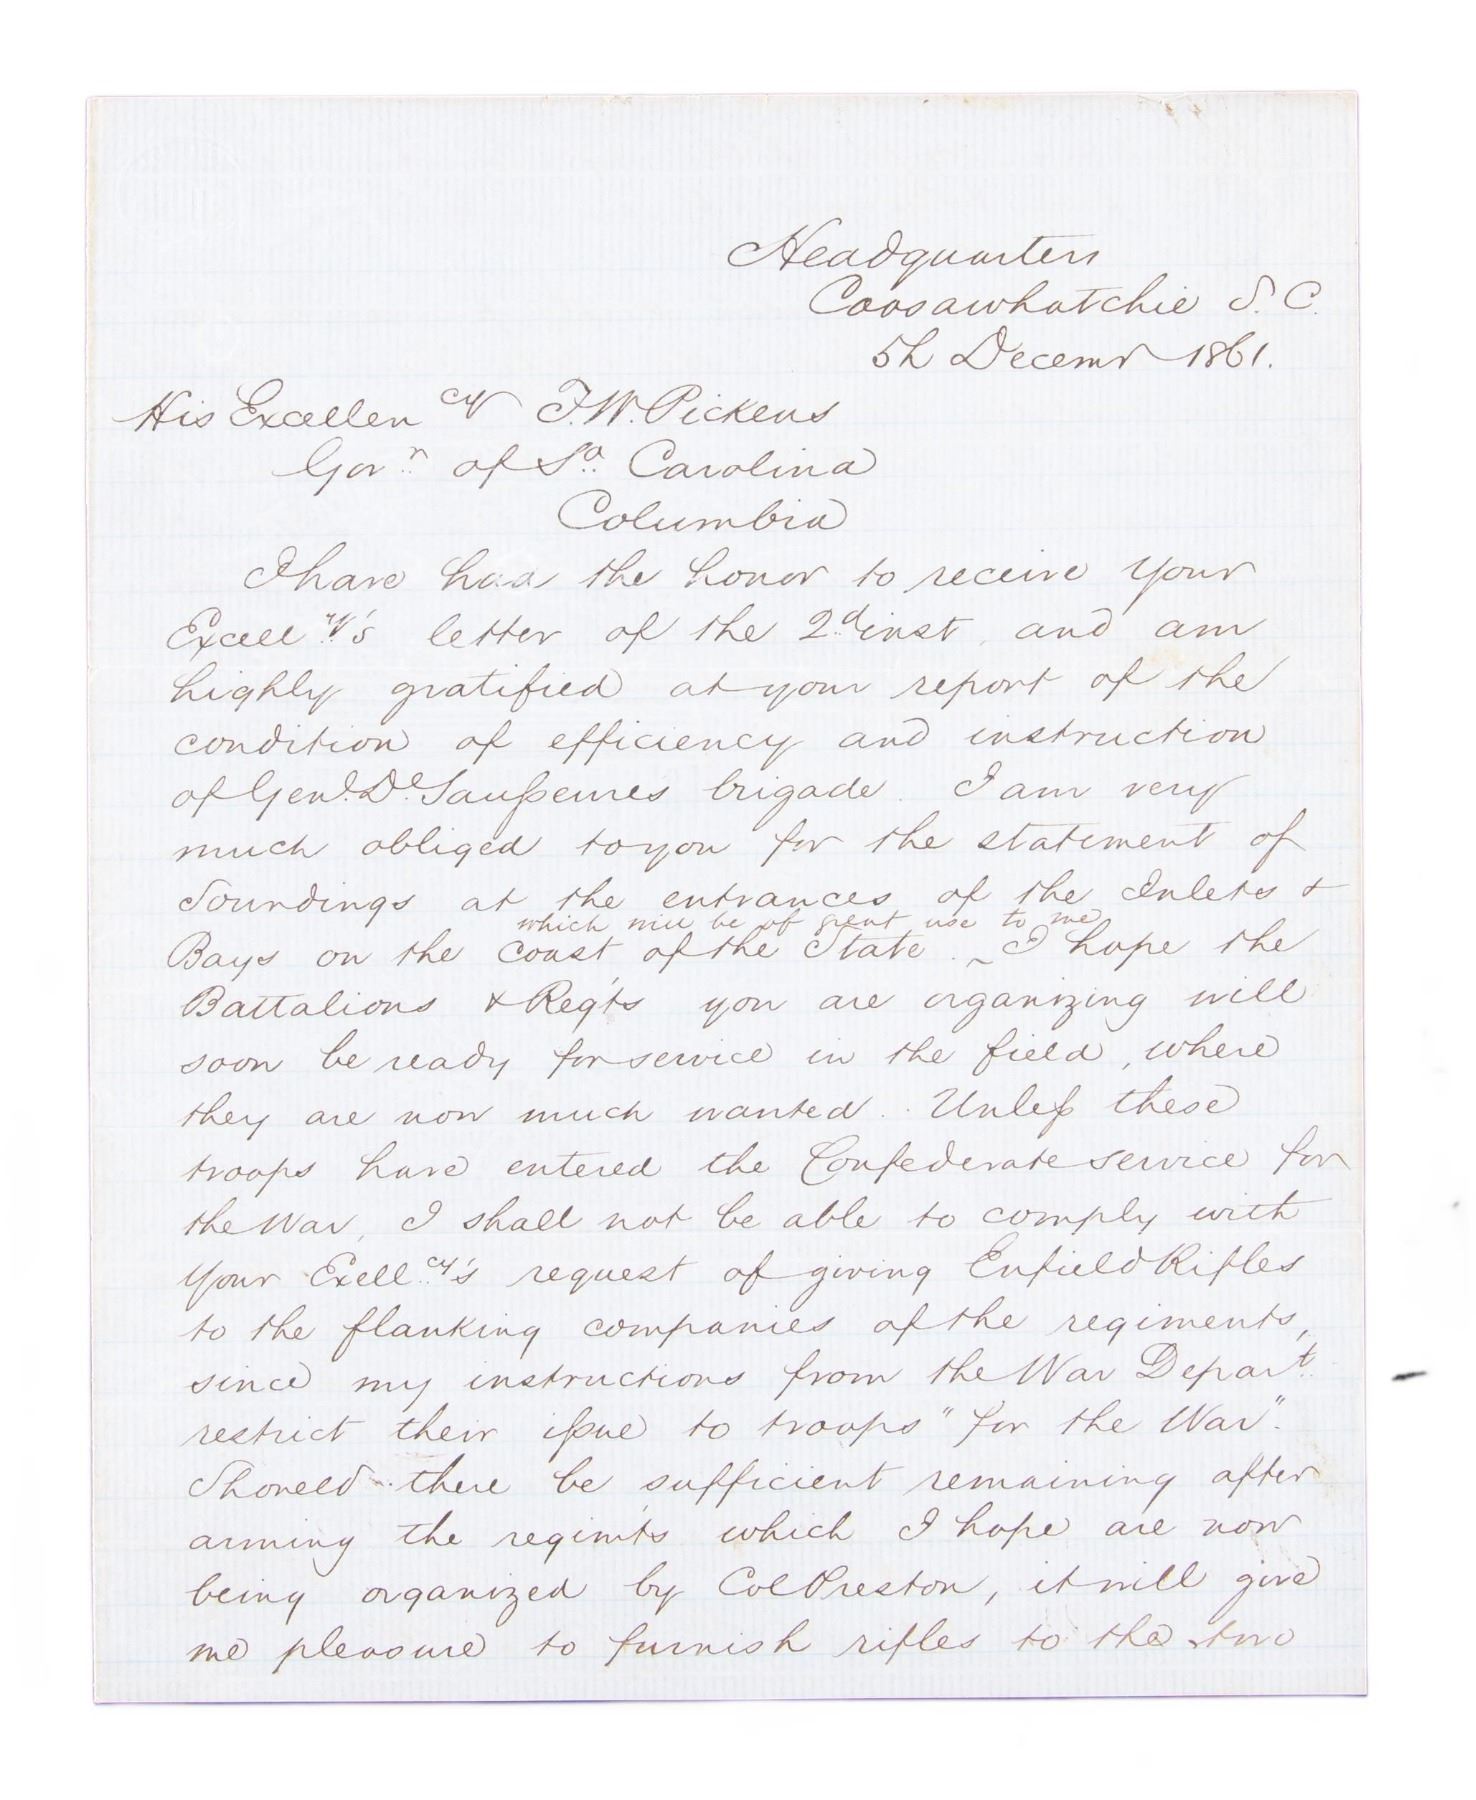 Headquarters
Coosawhatchie S. C.
5h Decemr 1861.
His Excellency F. W. Pickens
Govr. of So. Carolina
Columbia
I have had the honor to receive Your
Excellcy's letter of the 2d inst. and am
highly gratified at your report of the
condition of efficiency and instruction
of Genl. De Saussures brigade. I am very
much obliged to you for the statement of
Soundings at the entrances of the Inlets &
which will be of great use to me
Bays on the coast of the State. I hope the
Battalions & Reg'ts you are organizing will
soon be ready for service in the field, where
they are now much wanted. Unless these
troops have entered the Confederate service for
the War, I shall not be able to comply with
Your Exellcy's request of giving Enfield Rifles
to the flanking companies of the regiments,
since my instructions from the War Depart.
restrict their issue to troops "for the War".
Should there be sufficient remaining after
arming the regim'ts which I hope are now
being organized by Col Preston, it will give
me pleasure to furnish rifles to the two